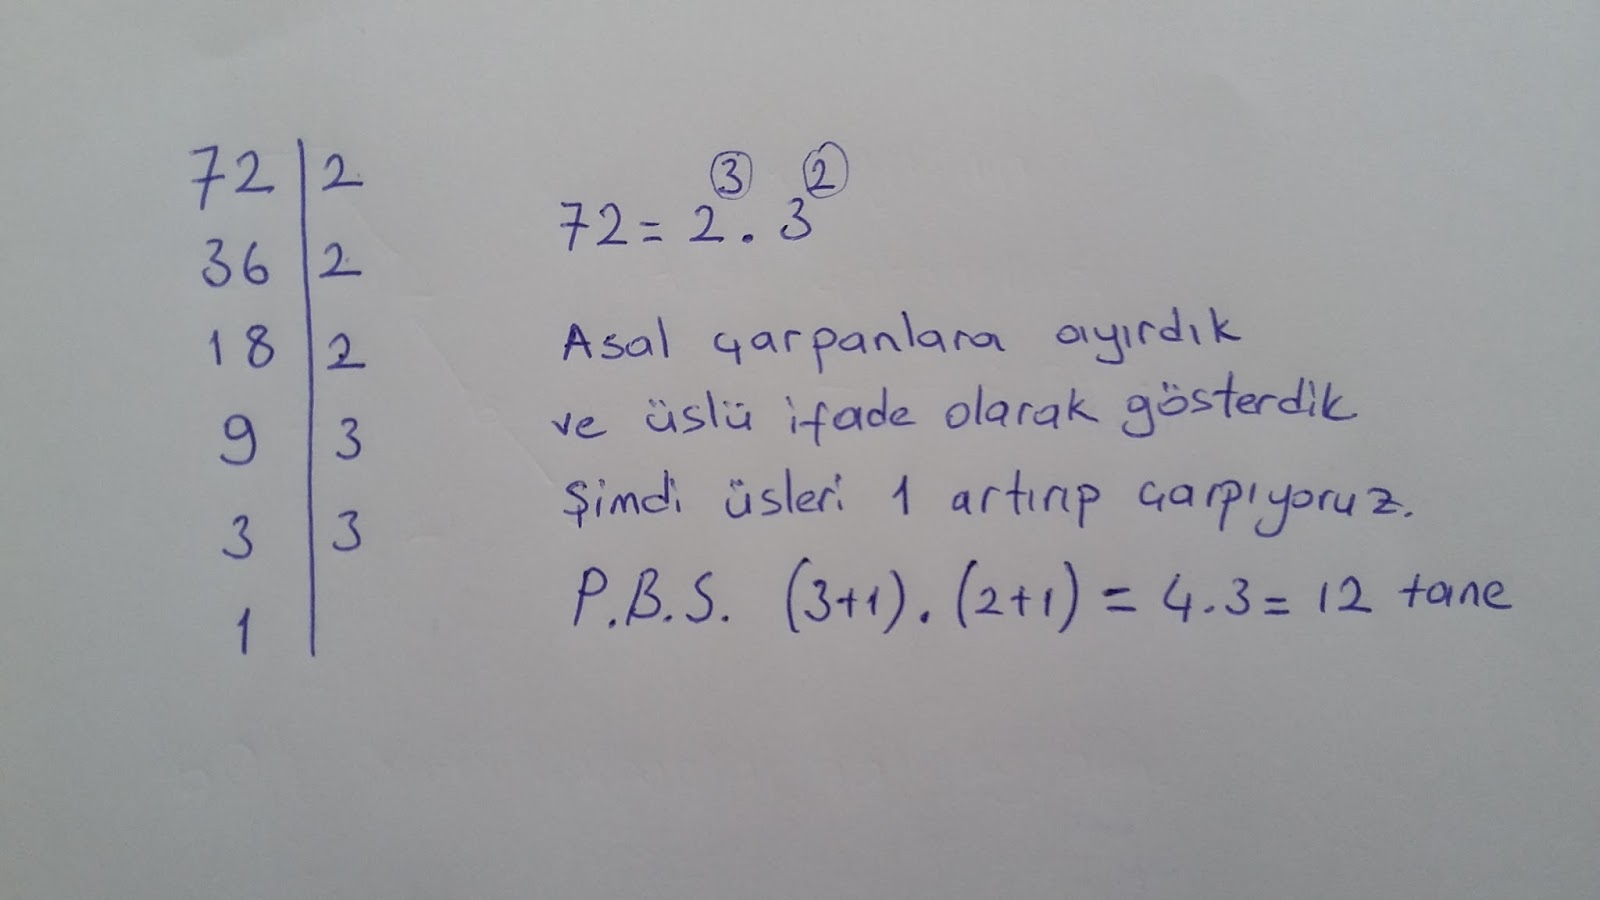 72 | 2
36 | 2
18 | 2
9 | 3
3 | 3
1 |
72 = 2³ . 3²
Asal çarpanlara ayırdık
ve üslü ifade olarak gösterdik
Şimdi üsleri 1 artırıp çarpıyoruz.
P.B.S. (3+1).(2+1) = 4.3 = 12 tane